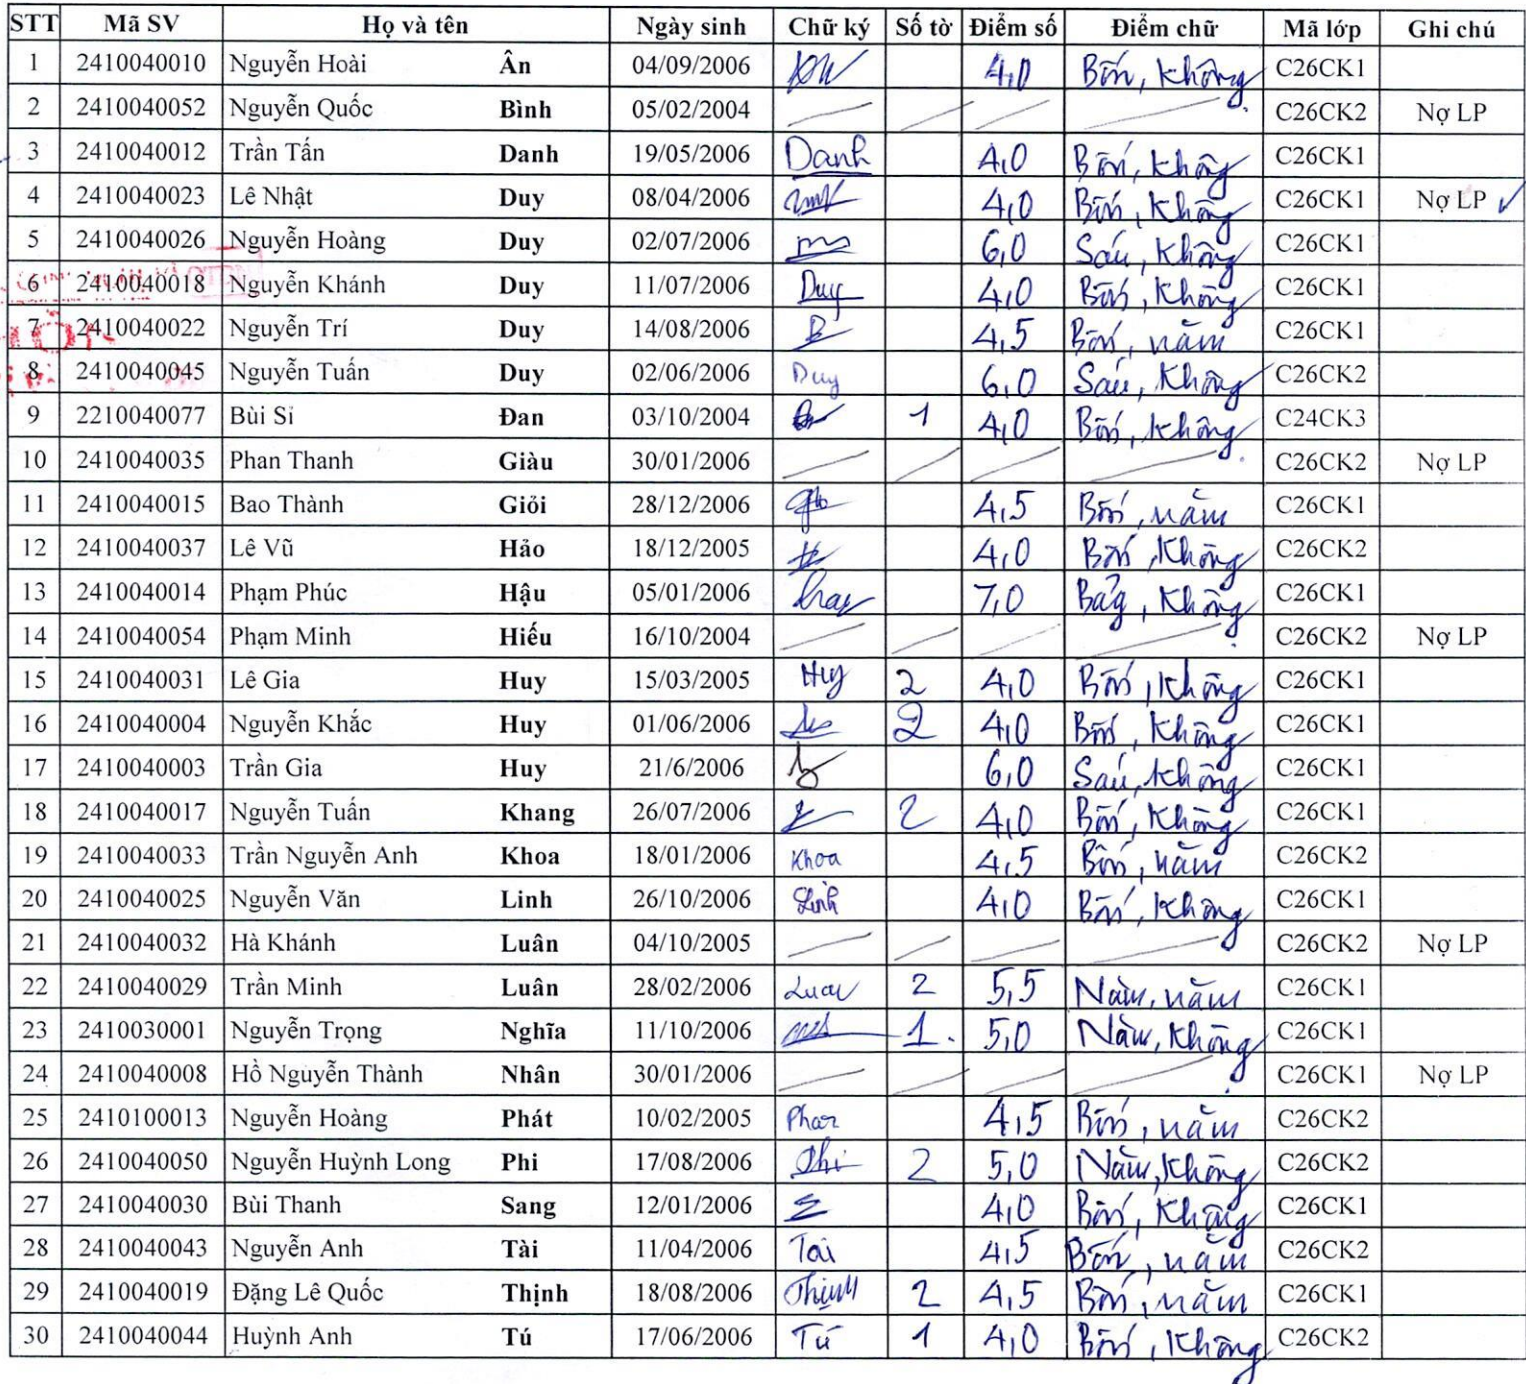 STT Mã SV Họ và tên Ngày sinh Chữ ký Số tờ Điểm số Điểm chữ Mã lớp Ghi chú
1 2410040010 Nguyễn Hoài Ân 04/09/2006 4,0 Bốn, không C26CK1
2 2410040052 Nguyễn Quốc Bình 05/02/2004 C26CK2 Nợ LP
3 2410040012 Trần Tấn Danh 19/05/2006 Danh 4,0 Bốn, không C26CK1
4 2410040023 Lê Nhật Duy 08/04/2006 4,0 Bốn, không C26CK1 Nợ LP
5 2410040026 Nguyễn Hoàng Duy 02/07/2006 6,0 Sáu, không C26CK1
6 2410040018 Nguyễn Khánh Duy 11/07/2006 Duy 4,0 Bốn, không C26CK1
7 2410040022 Nguyễn Trí Duy 14/08/2006 4,5 Bốn, năm C26CK1
8 2410040045 Nguyễn Tuấn Duy 02/06/2006 Duy 6,0 Sáu, không C26CK2
9 2210040077 Bùi Sĩ Đan 03/10/2004 1 4,0 Bốn, không C24CK3
10 2410040035 Phan Thanh Giàu 30/01/2006 C26CK2 Nợ LP
11 2410040015 Bao Thành Giỏi 28/12/2006 4,5 Bốn, năm C26CK1
12 2410040037 Lê Vũ Hảo 18/12/2005 4,0 Bốn, không C26CK2
13 2410040014 Phạm Phúc Hậu 05/01/2006 7,0 Bảy, không C26CK1
14 2410040054 Phạm Minh Hiếu 16/10/2004 C26CK2 Nợ LP
15 2410040031 Lê Gia Huy 15/03/2005 Huy 2 4,0 Bốn, không C26CK1
16 2410040004 Nguyễn Khắc Huy 01/06/2006 2 4,0 Bốn, không C26CK1
17 2410040003 Trần Gia Huy 21/6/2006 6,0 Sáu, không C26CK1
18 2410040017 Nguyễn Tuấn Khang 26/07/2006 2 4,0 Bốn, không C26CK1
19 2410040033 Trần Nguyễn Anh Khoa 18/01/2006 Khoa 4,5 Bốn, năm C26CK2
20 2410040025 Nguyễn Văn Linh 26/10/2006 Linh 4,0 Bốn, không C26CK1
21 2410040032 Hà Khánh Luân 04/10/2005 C26CK2 Nợ LP
22 2410040029 Trần Minh Luân 28/02/2006 Luân 2 5,5 Năm, năm C26CK1
23 2410030001 Nguyễn Trọng Nghĩa 11/10/2006 1. 5,0 Năm, không C26CK1
24 2410040008 Hồ Nguyễn Thành Nhân 30/01/2006 C26CK1 Nợ LP
25 2410100013 Nguyễn Hoàng Phát 10/02/2005 Phát 4,5 Bốn, năm C26CK2
26 2410040050 Nguyễn Huỳnh Long Phi 17/08/2006 Phi 2 5,0 Năm, không C26CK2
27 2410040030 Bùi Thanh Sang 12/01/2006 4,0 Bốn, không C26CK1
28 2410040043 Nguyễn Anh Tài 11/04/2006 Tài 4,5 Bốn, năm C26CK2
29 2410040019 Đặng Lê Quốc Thịnh 18/08/2006 Thịnh 2 4,5 Bốn, năm C26CK1
30 2410040044 Huỳnh Anh Tú 17/06/2006 Tú 1 4,0 Bốn, không C26CK2